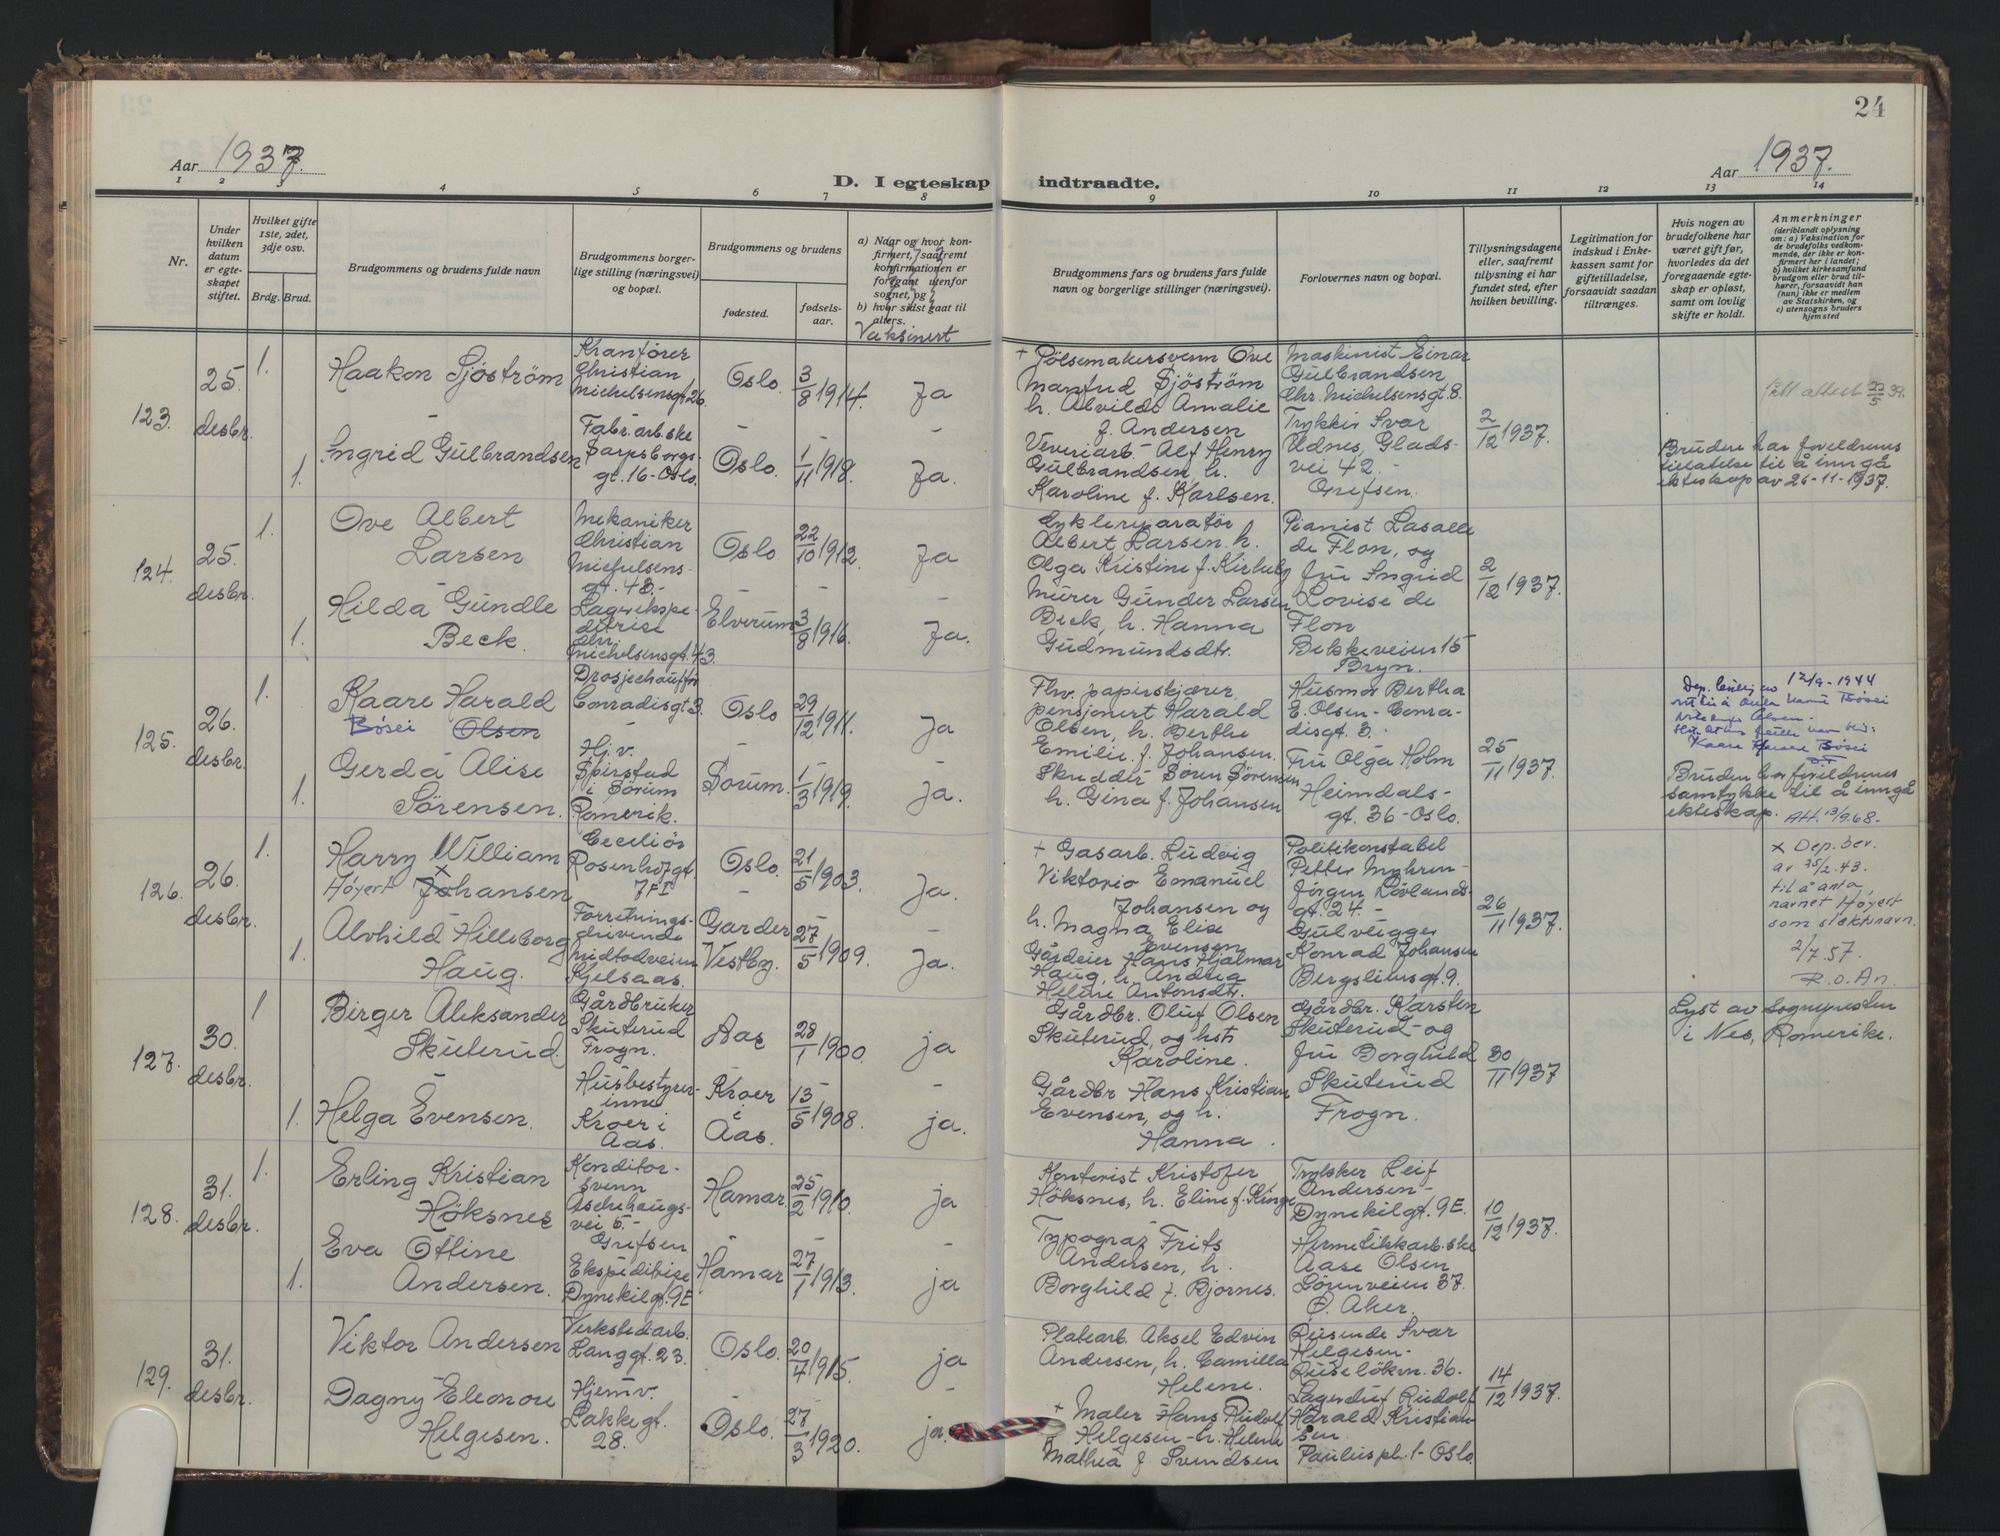 24
Aar 1937.
Aar 1937.
D. I egteskap indtraadte.
1 2 3 4 5 6 7 8 9 10 11 12 13 14
Nr.
Under hvilken datum er egteskapet stiftet.
Hvilket gifte 1ste, 2det, 3dje osv.
Brdg. Brud.
Brudgommens og brudens fulde navn
Brudgommens borgerlige stilling (næringsvei) og bopæl.
Brudgommens og brudens
fødested.
fødselsaar.
a) Naar og hvor konfirmert, saafremt konfirmationen er foregaat utenfor sognet, og
b) hvor sidst gaat til alters.
Vaksinert
Brudgommens fars og brudens fars fulde navn og borgerlige stillinger (næringsvei).
Forlovernes navn og bopæl.
Tillysningsdagene eller, saafremt tillysning ei har fundet sted, efter hvilken bevilling.
Legitimation for indskud i Enkekassen samt for giftetilladelse, forsaavidt saadan tiltrænges.
Hvis nogen av brudefolkene har været gift før, hvorledes da det foregaaende egteskap er opløst, samt om lovlig skifte er holdt.
Anmerkninger
(deriblandt oplysning om: a) Vaksination for de brudefolks vedkommende, der ikke er konfirmert her i landet; b) hvilket kirkesamfund brudgom eller brud tilhører, forsaavidt han (hun) ikke er medlem av Statskirken, og c) utensogns bruders hjemsted
123.
25. desbr.
1.
Haakon Sjöström
Kranfører Christian Michelsensgt 26.
Oslo
3/8 1914.
Ja
+ Pölsemakersvenn Ove Manfud Sjöström h. Alvilde Amalie f. Andersen
Maskinist Einar Gulbrandsen Chr. Michelsensgt 8.
2/12 1937.
1.
Ingrid Gulbrandsen
Fabr. arb. ske Sarpsborgsgt. 16 - Oslo.
Oslo.
1/11 1918.
Ja.
Veveriarb - Alf Henry Gulbrandsen, h. Karoline f. Karlsen.
Trykker Ivar Udnes, Gladsvei 42. - Grefsen.
Bruden har foreldrenes tillatelse til å inngå ekteskap av 26-11-1937.
attest 22/5 39.
124.
25. desbr.
1.
Ove Albert Larsen
Mekaniker Christian Michelsensgt. 43. -
Oslo
22/10 1912.
Ja
Cyklereparatør Albert Larsen h. Olga Kristine f. Kirkeby
Pianist Lasalle de Flon, og fru Ingrid Lovise de Flon Bekkeveien 15 Bryn.
2/12 1937.
1.
Hilda Gundle Beck
Lagerekspeditrise Chr. Michelsensgt. 43.
Elverum
3/8 1916.
Ja.
Murer Gunder Larsen Beck, h. Hanna Gudmundsdtr.
125.
26. desbr.
1.
Kaare Harald Olsen
Bösei
Drosjechauffør Conradisgt 3.
Oslo
29/12 1911.
Ja
Fhv. papirskjærer, pensjonert Harald Olsen, h. Berthe Emilie f. Johansen.
Husmor Bertha E. Olsen - Conradisgt. 3. -
25/11 1937.
12/9-1944
Kaare Harald Bösei
1.
Gerda Alise Sörensen.
Hj. v. Spirstad i Sørum Romerik.
Sorum.
1/3 1919.
ja.
Skredder Sören Sörensen h. Gina f. Johansen
Fru Olga Holm Heimdalsgt. 36 - Oslo.
Bruden har foreldrenes samtykke til å inngå ekteskap.
Att. 13/9.68.-
126.
26. desbr.
1.
Harry William Johansen
Höyert
Ceciliör Rosenhofgt. 7 F I
Oslo.
21/5 1903.
Ja.
+ Gasarb. Ludvig Viktorio Emanuel Johansen og h. Magna Elise Evensen
Politikonstabel Petter Myhren - Jörgen Lövlandsgt. 24. -
26/11 1937.
x Dep. bev. av 25/2.43. til å anta navnet Höyert som slektsnavn.
2/7.57.
R.O.An.
1.
Alvhild Hilleborg Haug.
Forretningsdrivende Midtodveien Kjelsaas.
Garder Vestby.
27/5 1909.
Ja.
Gårdeier Hans Hjalmar Haug, h. Andrea Heline Antonsdtr.
Gulveigger Konrad Johansen Bergsliensgt. 9.
127.
30. desbr.
1
Birger Aleksander Skuterud.
Gårdbruker Skuterud Frogn.
Aas
28/1 1900.
ja
Gårdbr. Oluf Olsen Skuterud, og hst. Karoline.
Gårdbr. Karsten Skuterud - og fru Borghild Skuterud Frogn.
30/11 1937
Lyst av Sognepresten i Nes, Romerike.
1.
Helga Evensen.
Husbestyrerinne Kroer i Aas.
Kroer i Aas.
13/5 1908.
ja.
Gårdbr Hans Kristian Evensen, og h. Hanna.
128.
31. desbr.
1.
Erling Kristian Höksnes
Konditorsvenn Aschehaugsvei 5. - Grefsen
Hamar
25/2 1910.
ja
Kontorist Kristofer Höksnes, h. Eline f. Ringe
Trykker Leif Andersen - Dynekilgt. 9 E.
10/12 1937.
1.
Eva Otline Andersen.
Ekspeditrise Dynekilgt. 9 E
Hamar
27/1 1913.
ja
Typograf Frits Andersen, h. Borghild f. Bjornes.
Hermetikkarb. ske Aase Olsen Sörenveien 37. Ö. Aker.
129.
31. desbr.
Viktor Andersen
Verkstedarb. Langgt. 23.
Oslo.
20/4 1915.
ja
Platearb. Aksel Edvin Andersen, h. Camilla Helene.
Reisende Ivar Helgesen - Ruselökvn. 36.
14/12 1937.
Dagny Eleonore Helgesen.
Hjemv. Lakkegt. 28.
Oslo.
27/3 1920.
ja.
+ Maler Hans Rudolf Helgesen - h. Helene Mathea f. Svendsen
Lagersjef Rudolf Harald Kristiansen. Paulus pl. 1 - Oslo.